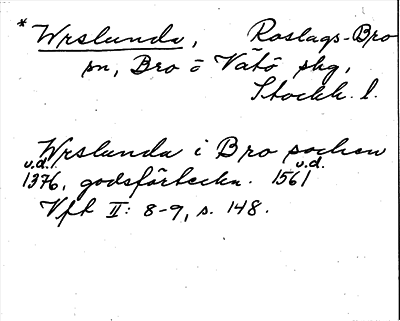 * Wrslunda, Roslags-Bro
sn, Bro o Vätö skg,
Stockh. l.
Wrslunda i Bro sochen
u.d. 1376, godsförteckn. 1561 u.d.
Vft II: 8-9, s. 148.